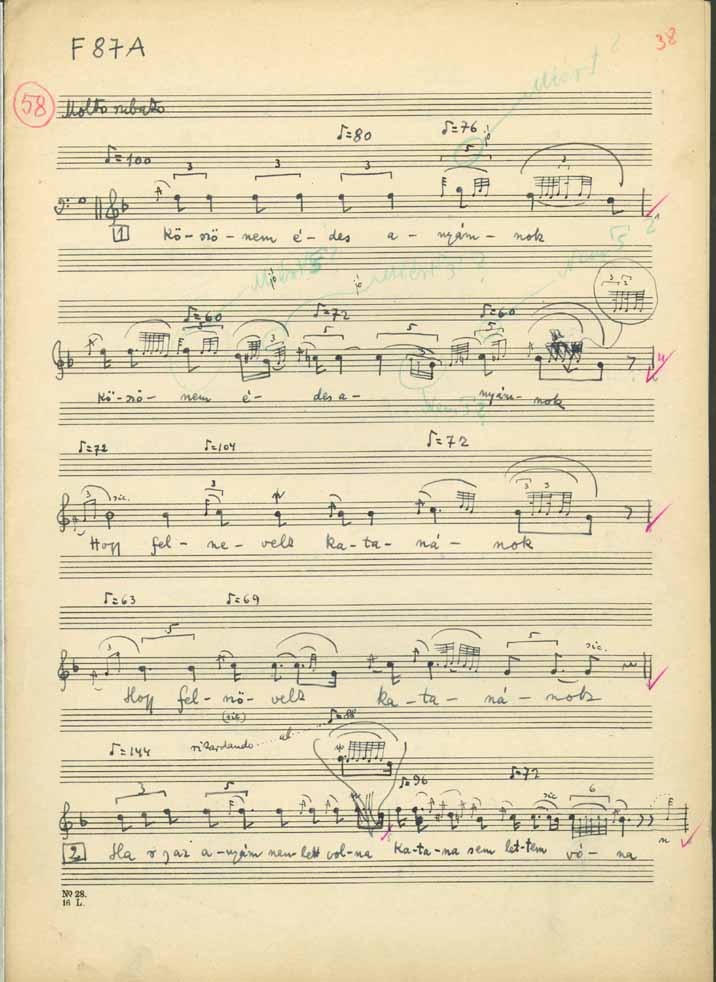 F 87A
38
58
Molto rubato
Miért ?
♪=100 ♪=80 ♪=76
jó
3 3 3 5 3
1 Kö-szö-nem é-des a-nyám-nok
Miért 5 ? Miért 3 ? 5 ?
jó jó
♪=60 ♪=72 ♪=60
5 3 5 5 5 3 2
Kö-szö-nem é- des a- nyám-nok
♪=72 ♪=104 ♪=72
3 sic. 3 3 3
Hogy fel-ne-velt ka-ta-ná-nok
♪=63 ♪=69
5 5 sic.
Hogy fel-nö-velt ka-ta-ná-nok
(sic)
♪=144 ritardando al ♪=88
♪=96 ♪=72
3 5 sic 6
2 Ha az a-nyám nem lett vol-na ka-ta-na sem let-tem vó-na
No 28.
16 L.